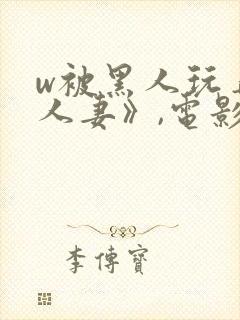 w被黑人玩
人妻》,電影
李傳寶